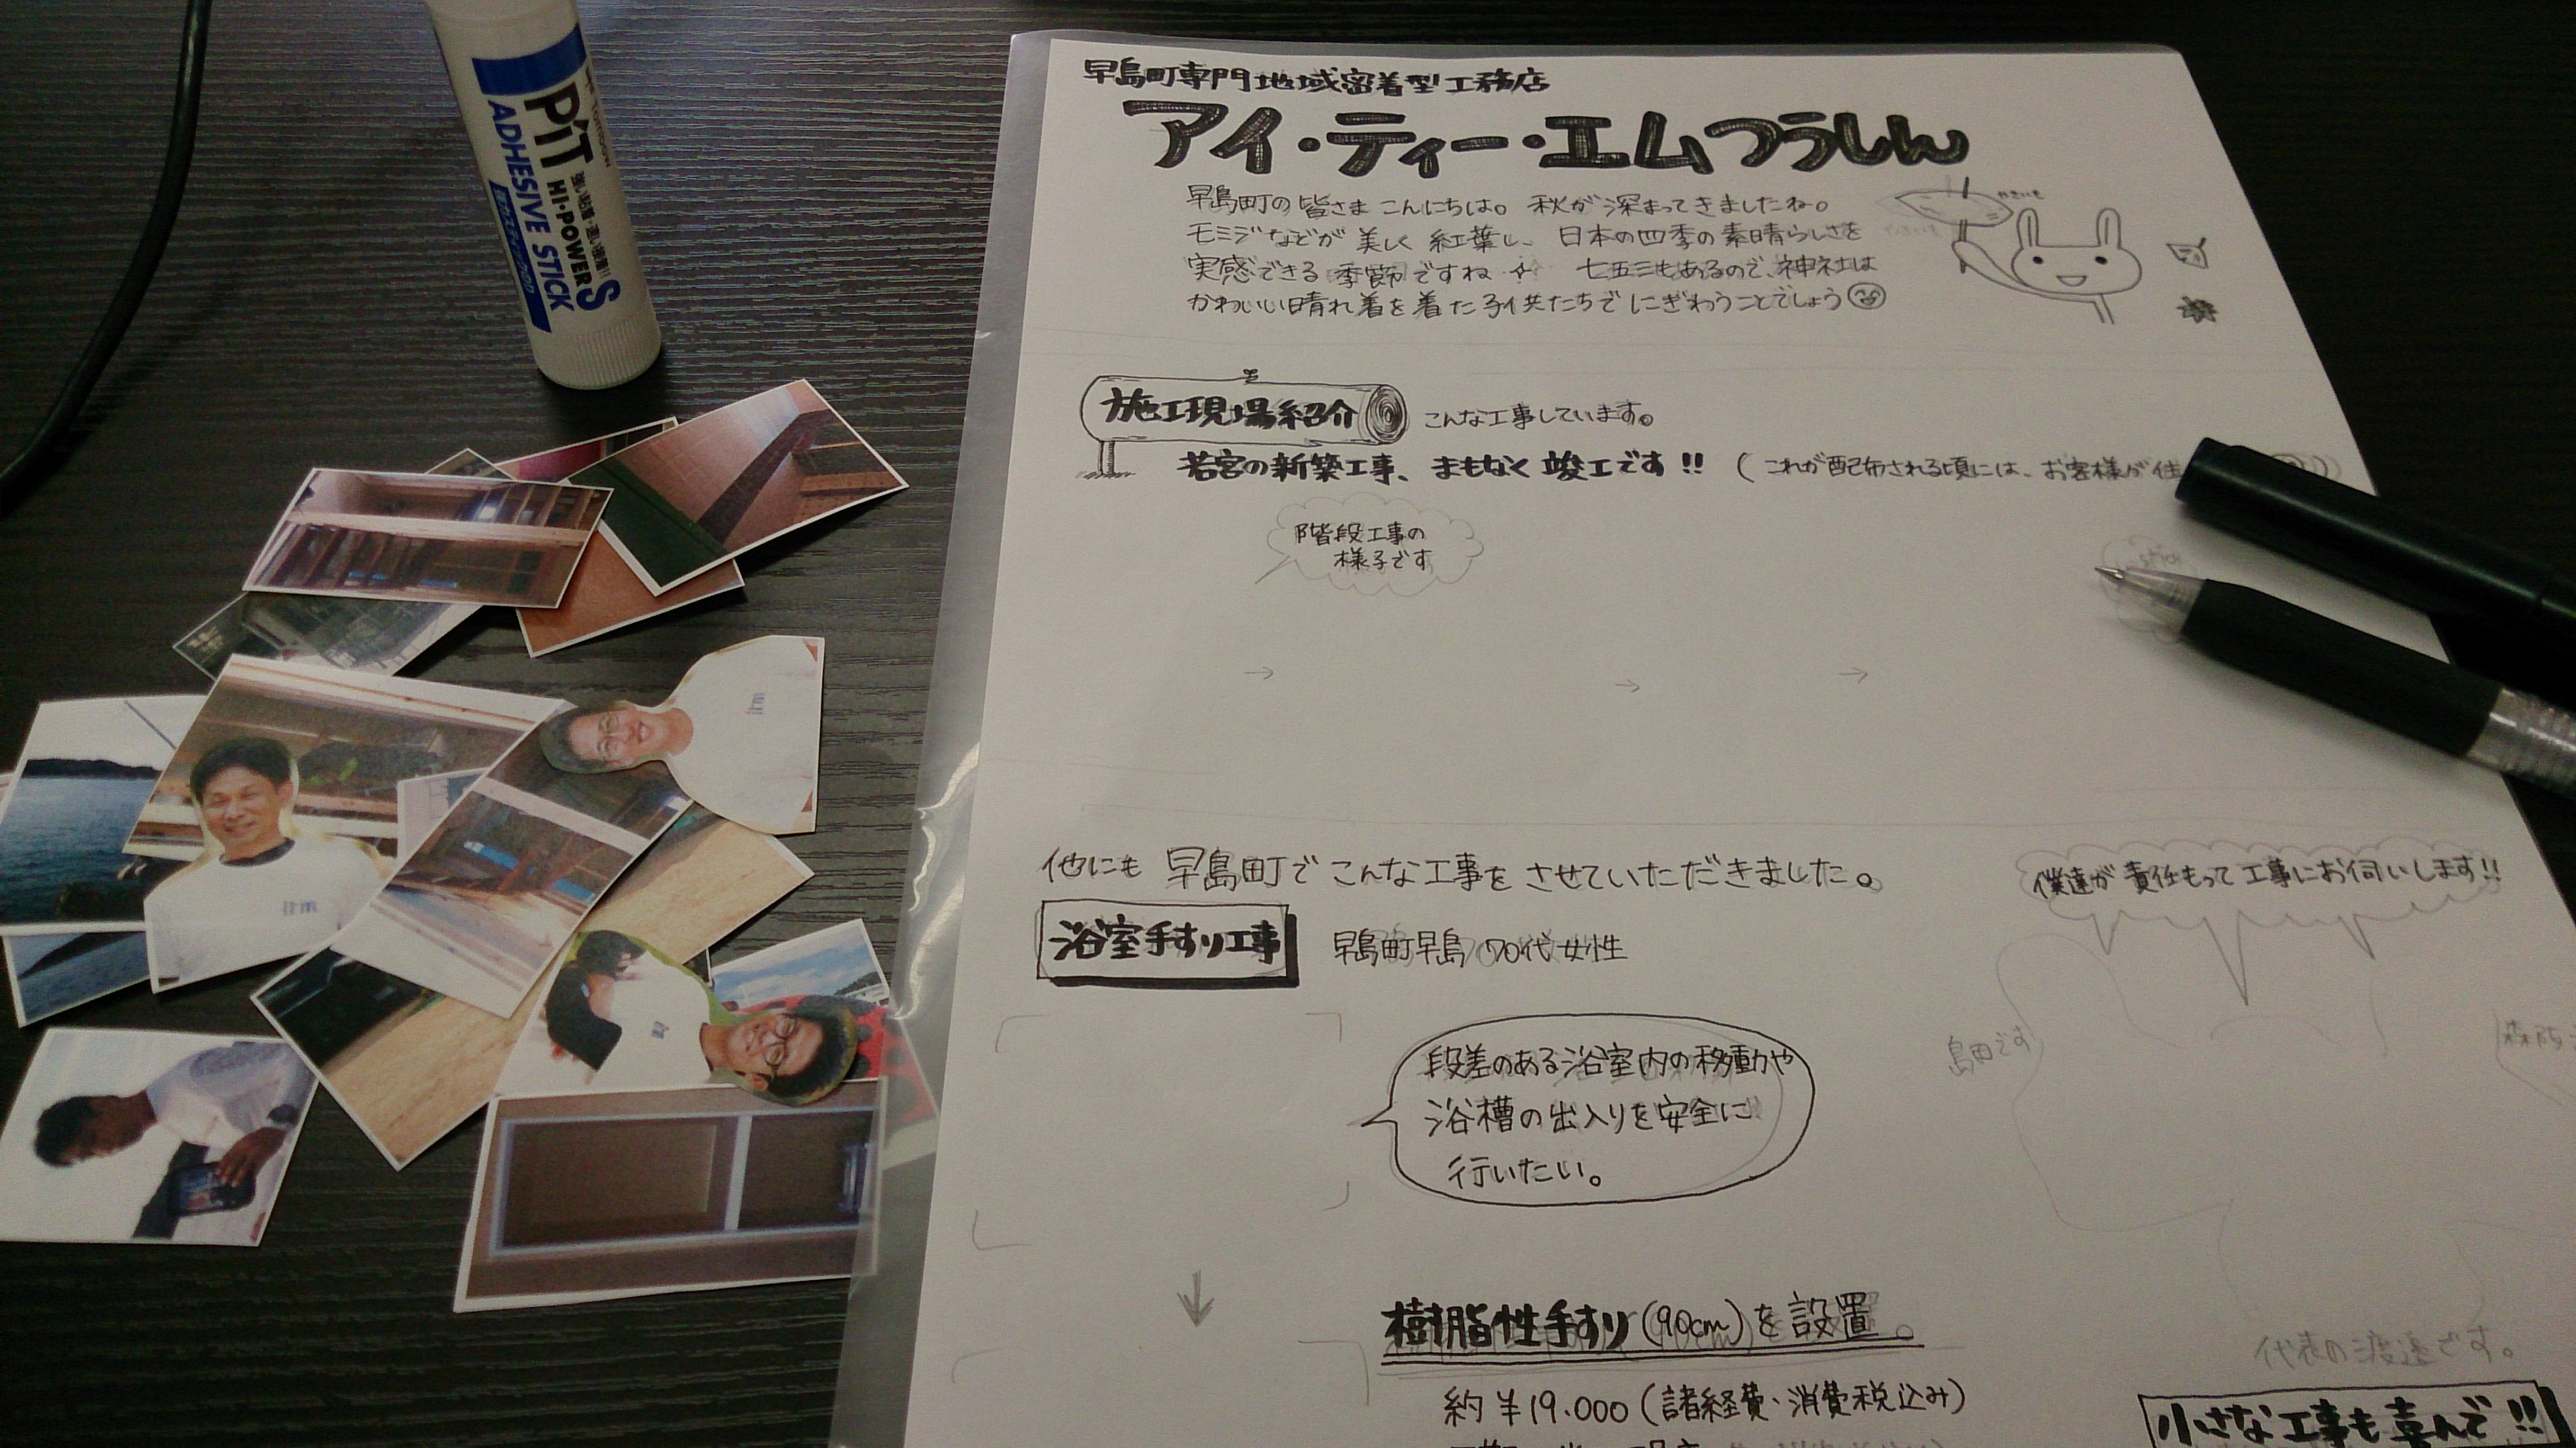 Tombow
PiT
強い粘着・速い接着!!
HI-POWER S
ADHESIVE STICK
早島町専門地域密着型工務店
アイ・ティー・エムつうしん
早島町の皆さまこんにちは。秋が深まってきましたね。
モミジなどが美しく紅葉し、日本の四季の素晴らしさを
実感できる季節ですね 七五三もあるので、神社は
かわいい晴れ着を着た子供たちでにぎわうことでしょう
やきいも
施工現場紹介
こんな工事しています。
若宮の新築工事、まもなく竣工です!!
(これが配布される頃には、お客様が住
階段工事の
様子です
→ → →
itm
itm
他にも早島町でこんな工事をさせていただきました。
僕達が責任もって工事にお伺いします!!
浴室手すり工事
早島町早島 70代女性
島田です
段差のある浴室内の移動や
浴槽の出入りを安全に
行いたい。
↓
樹脂性手すり(90cm)を設置。
代表の渡邊です。
約¥19.000(諸経費・消費税込み)
小さな工事も喜んで!!